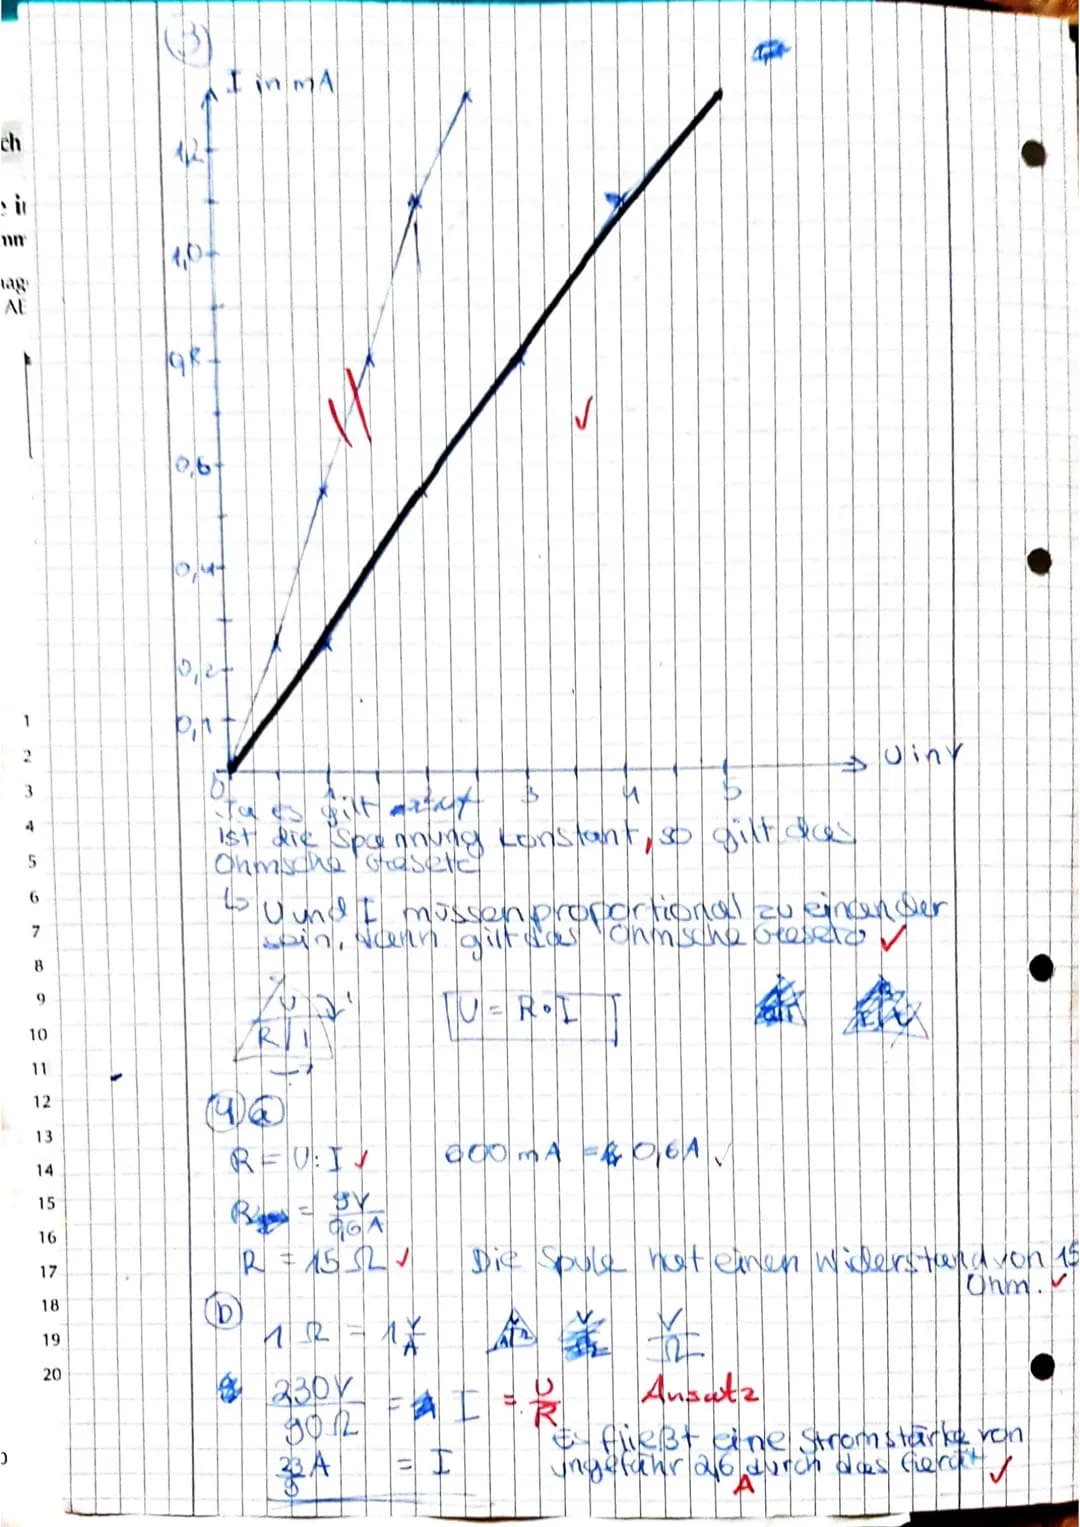 (3)
I in mA
1,2
1,0
0,8
0,6
0,4
0,2
0,1
0
1
3
4
5
U in V
Ja es gilt
ist die Spannung konstant, so gilt das
Ohmsche Gesetz
↳ U und I müssen proportional zu einander
sein, dann gilt das Ohmsche Gesetz ✓
U
R | I
U = R • I
(4) (a)
R = U : I ✓ 600 mA = 0,6A ✓
R = 9V
0,6A
R = 15 Ω ✓ Die Spule hat einen Widerstand von 15
Ohm. ✓
(b)
1 Ω = 1 V/A V/Ω
230V/90Ω = I = U/R Ansatz
Es fließt eine Stromstärke von
23/9 A = I ungefähr 2,6 A durch das Gerät ✓
ch
1
2
3
4
5
6
7
8
9
10
11
12
13
14
15
16
17
18
19
20